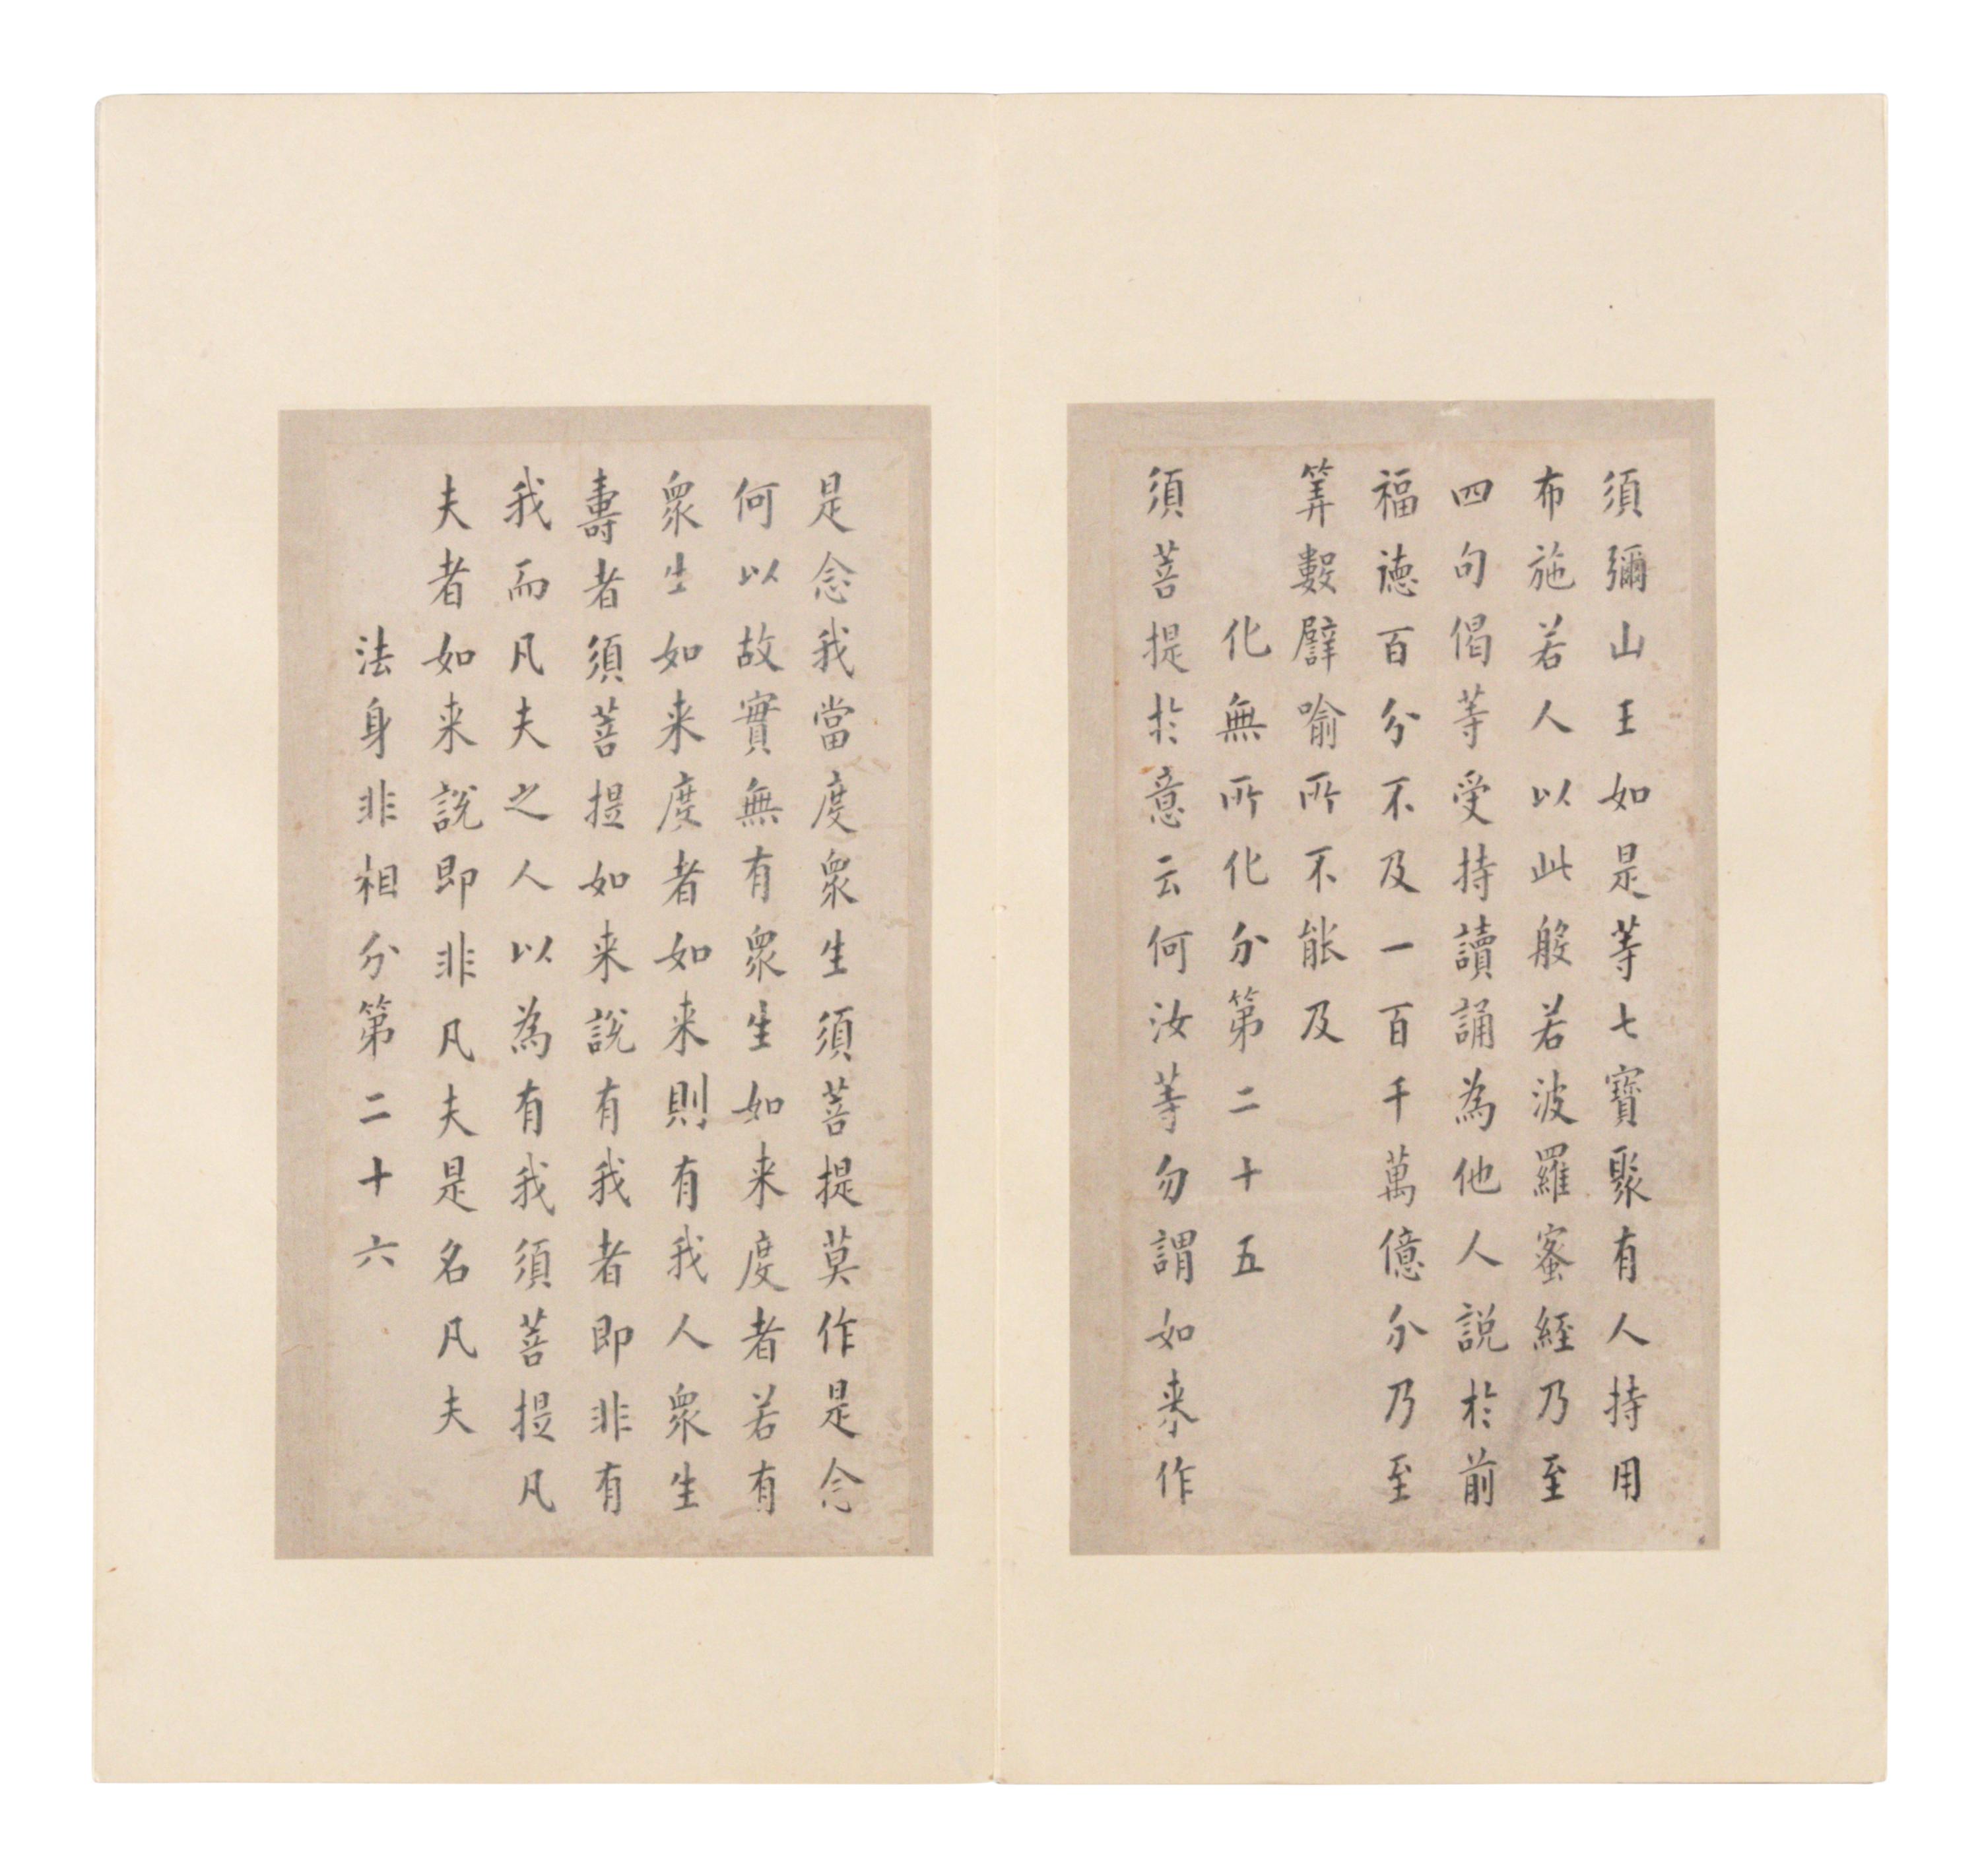 須彌山王如是等七寶聚有人持用
布施若人以此般若波羅蜜經乃至
四句偈等受持讀誦為他人説於前
福德百分不及一百千萬億分乃至
筭數譬喻所不能及
化無所化分第二十五
須菩提於意云何汝等勿謂如来作
是念我當度衆生須菩提莫作是念
何以故實無有衆生如来度者若有
衆生如来度者如来則有我人衆生
壽者須菩提如来說有我者即非有
我而凡夫之人以為有我須菩提凡
夫者如来說即非凡夫是名凡夫
法身非相分第二十六